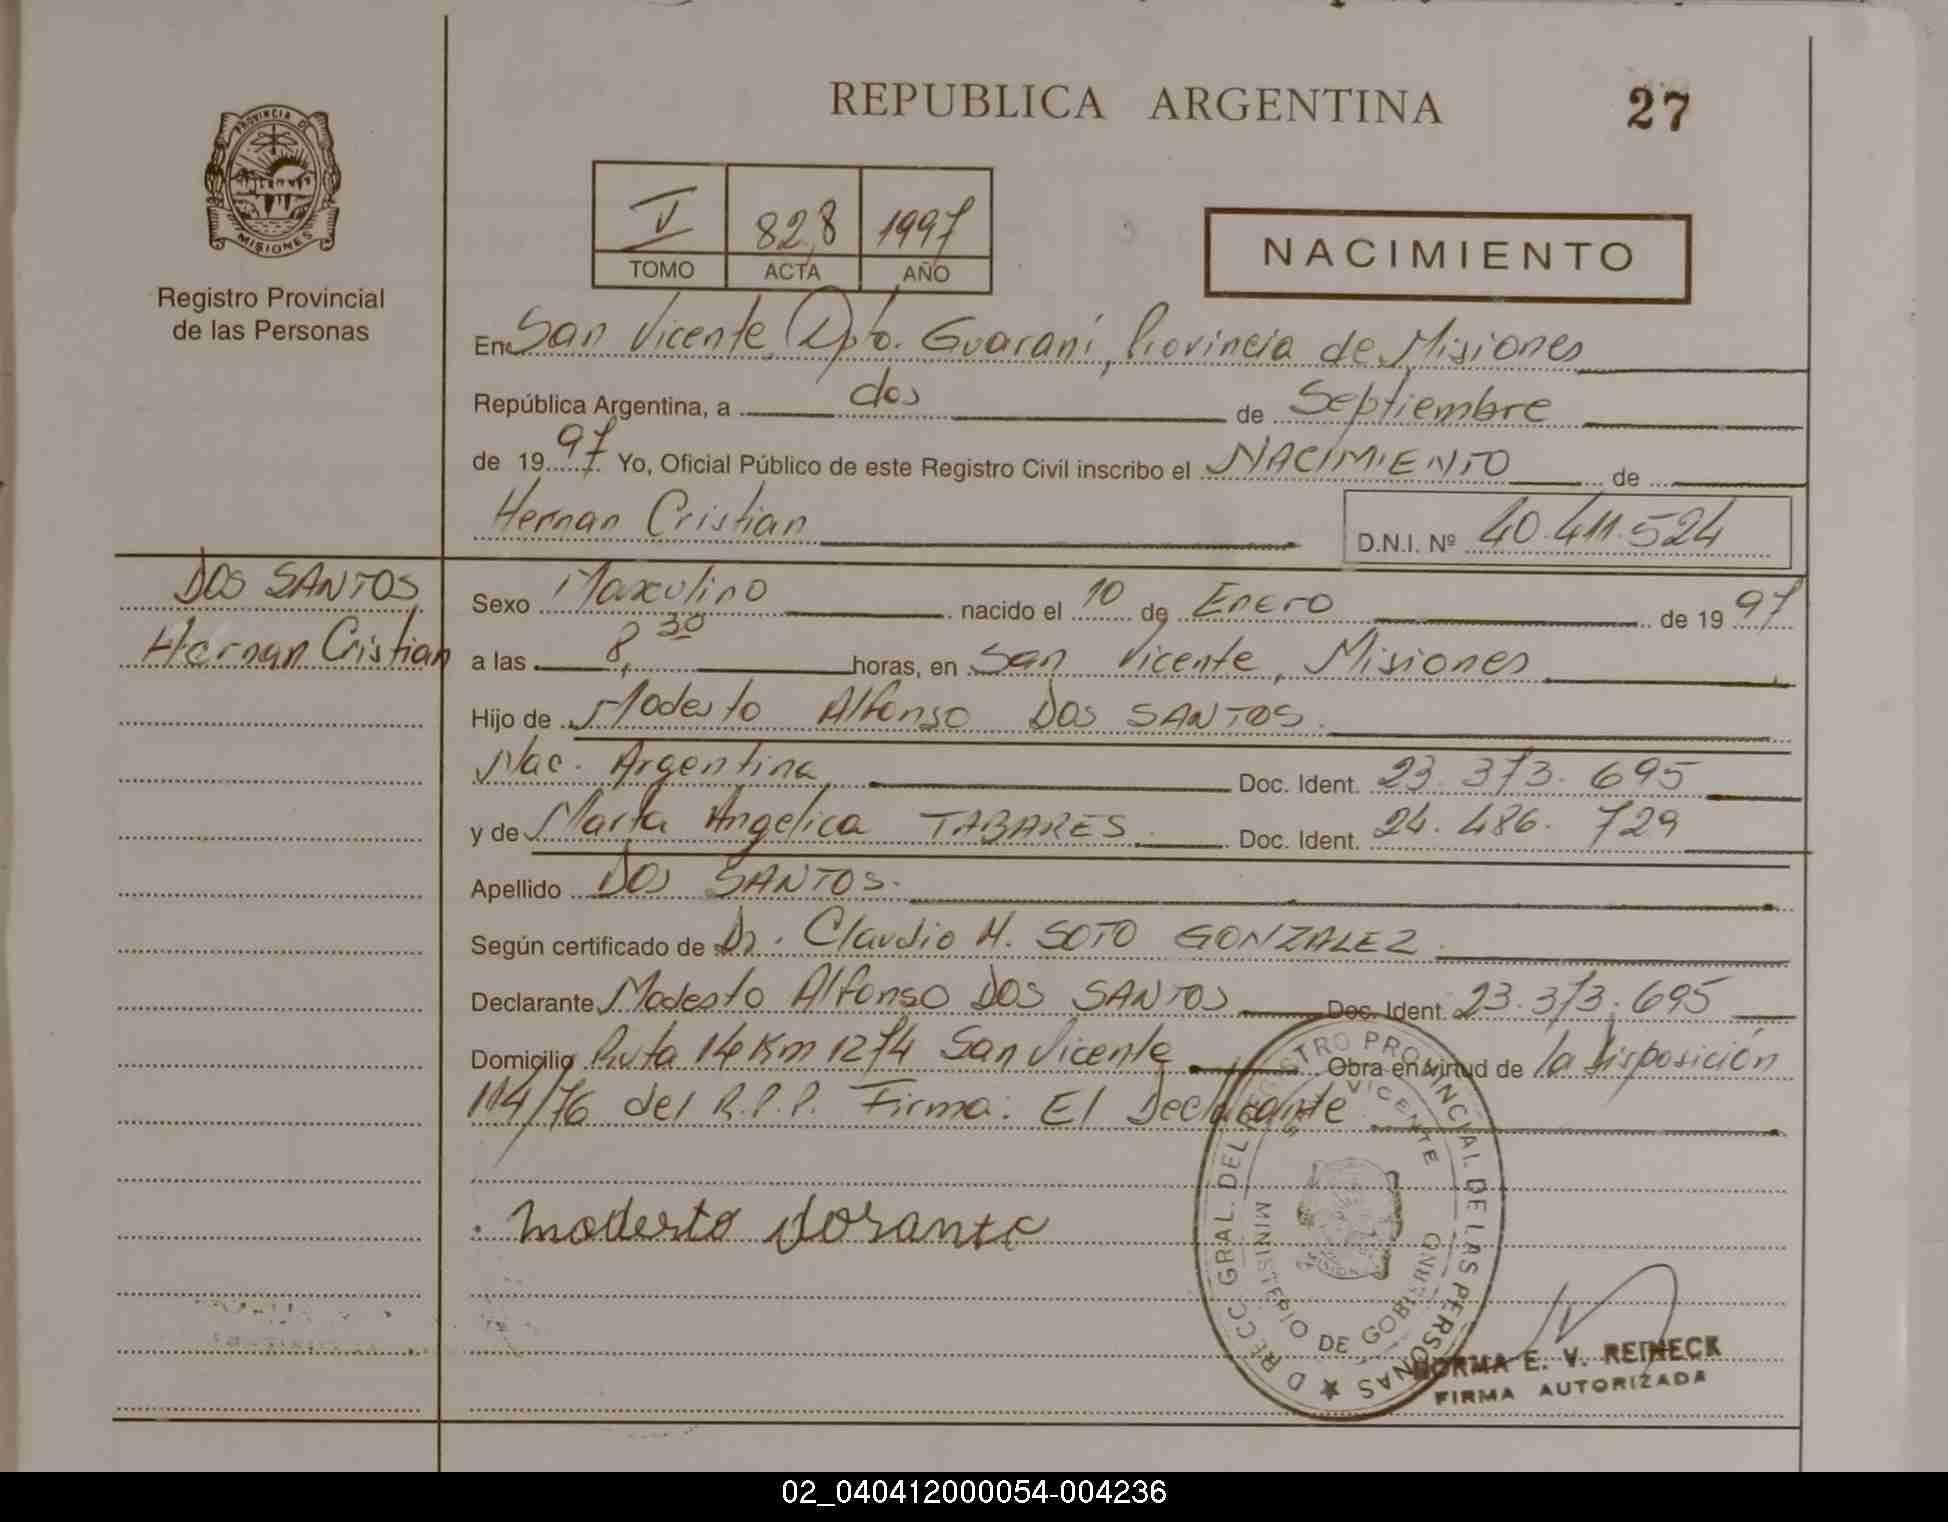 REPUBLICA ARGENTINA
27
PROVINCIA DE
MISIONES
Registro Provincial
de las Personas
V 828 1997
TOMO ACTA AÑO
NACIMIENTO
En San Vicente, Dpto. Guaraní, Provincia de Misiones
República Argentina, a dos de Septiembre
de 1997 Yo, Oficial Público de este Registro Civil inscribo el NACIMIENTO de
Hernan Cristian D.N.I. Nº 40.411.524
DOS SANTOS
Hernan Cristian
Sexo Masculino nacido el 10 de Enero de 1997
a las 8,30 horas, en San Vicente, Misiones
Hijo de Modesto Alfonso DOS SANTOS.
Nac. Argentina Doc. Ident. 23.373.695
y de Marta Angelica TABARES. Doc. Ident. 24.486.729
Apellido DOS SANTOS.
Según certificado de Dr. Claudio M. SOTO GONZALEZ.
Declarante Modesto Alfonso DOS SANTOS Doc. Ident. 23.373.695
Domicilio Ruta 14 Km 1274 San Vicente Obra en virtud de la disposición
114/76 del R.P.P. Firma: El Declarante
modesto
DIRECC. GRAL. DEL REGISTRO PROVINCIAL DE LAS PERSONAS
SAN VICENTE
MINISTERIO DE GOBIERNO
NORMA E. V. REINECK
FIRMA AUTORIZADA
02_040412000054-004236